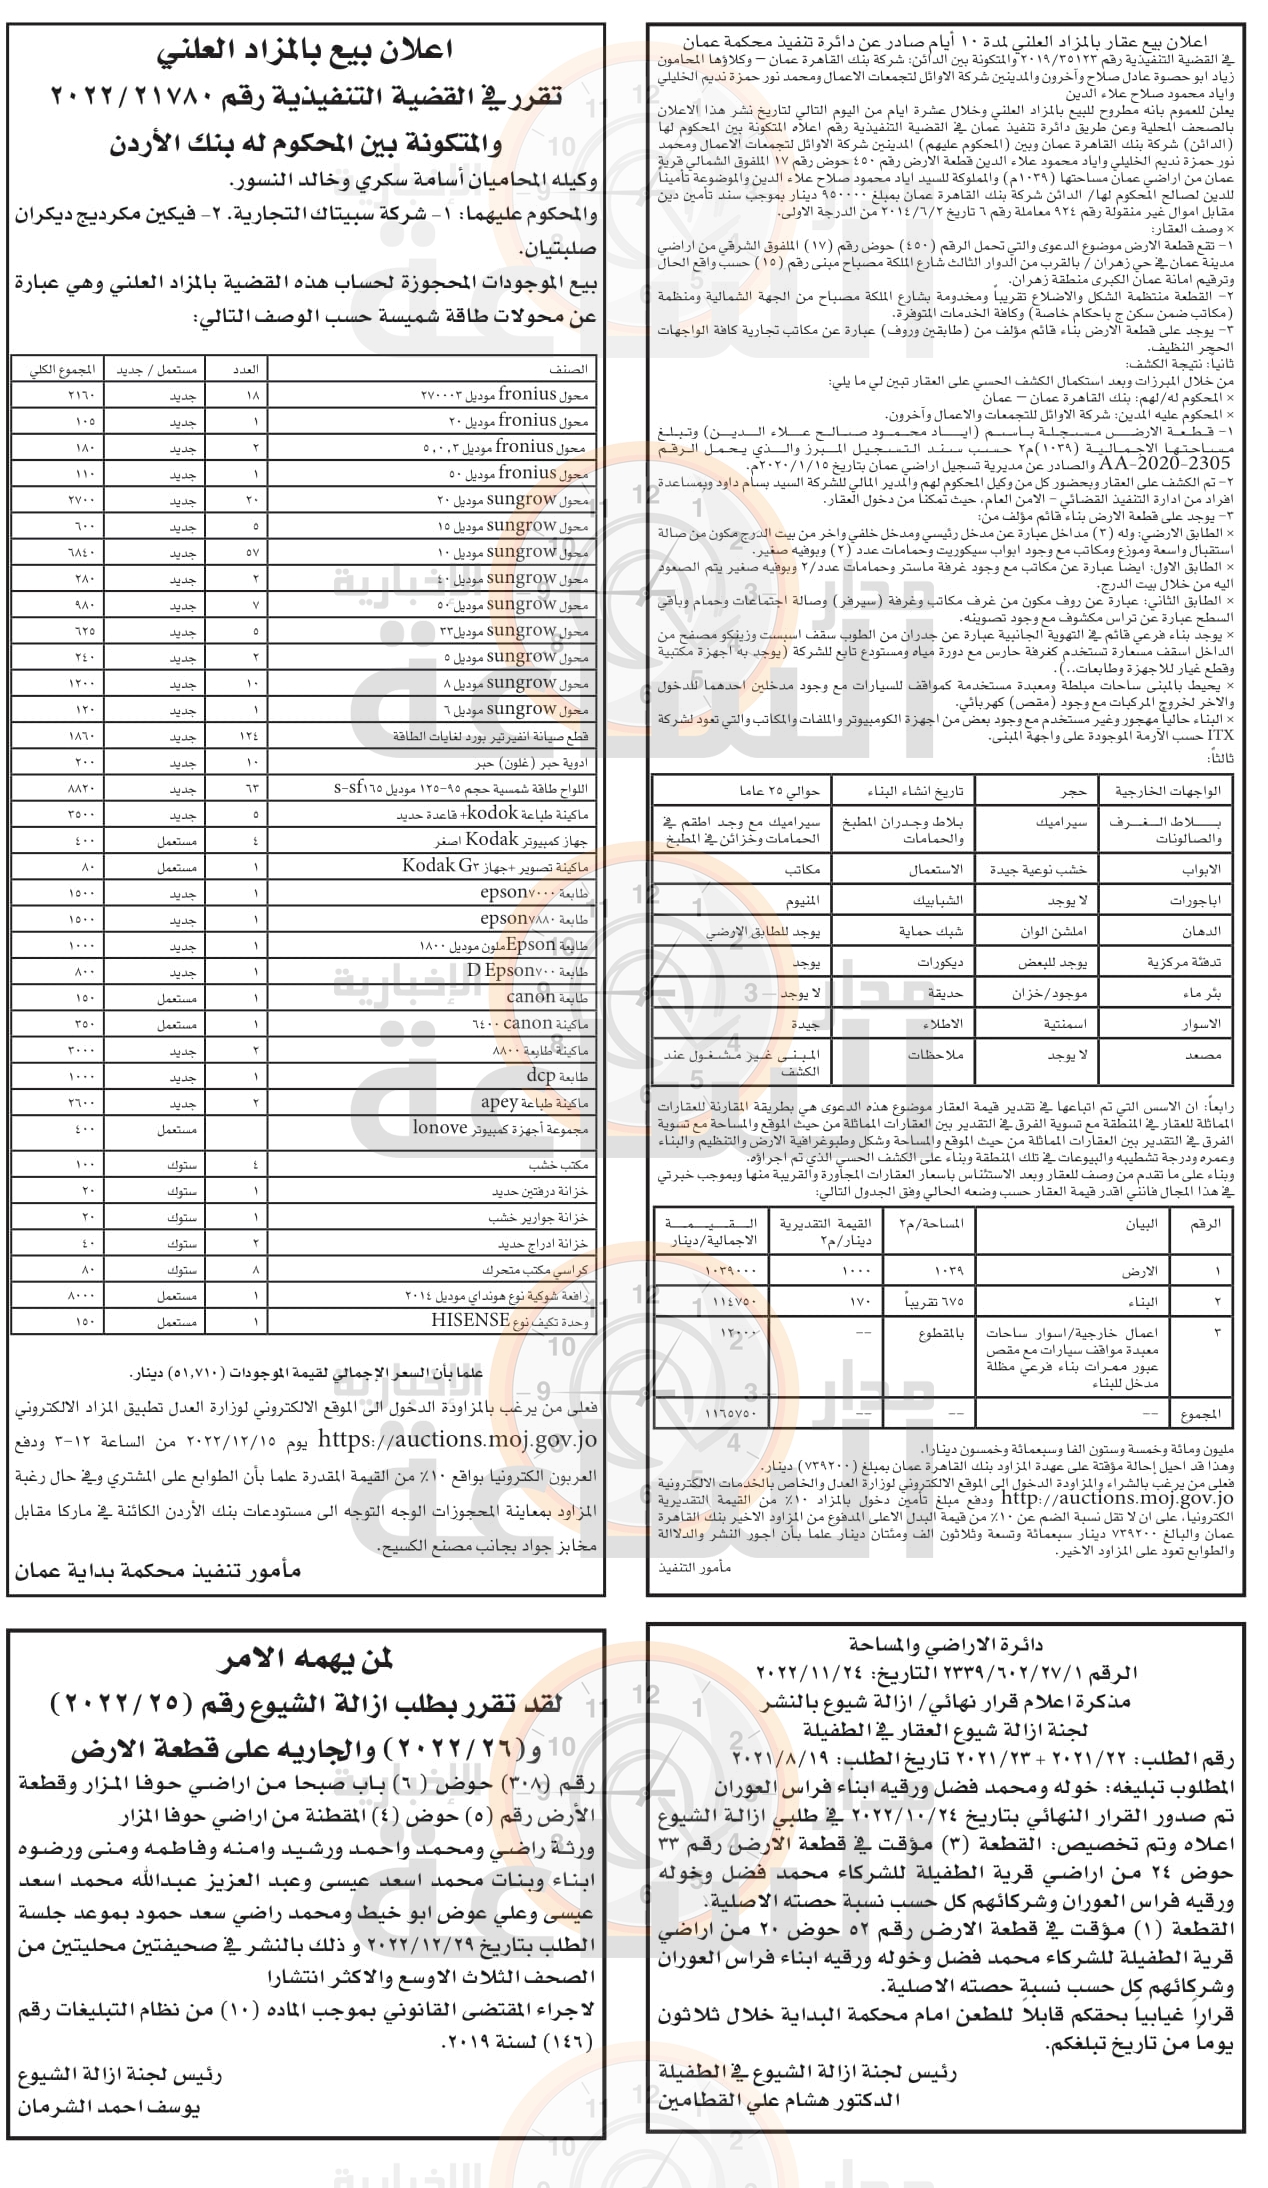 اعلان بيع عقار بالمزاد العلني لمدة ١٠ أيام صادر عن دائرة تنفيذ محكمة عمان
في القضية التنفيذية رقم ٢٠١٩/٣٥١٢٣ والمتكونة بين الدائن: شركة بنك القاهرة عمان – وكلاؤها المحامون
زياد ابو حصوة عادل صلاح وآخرون والمدينين شركة الاوائل لتجمعات الاعمال ومحمد نور حمزة نديم الخليلي
واياد محمود صلاح علاء الدين
يعلن للعموم بانه مطروح للبيع بالمزاد العلني وخلال عشرة ايام من اليوم التالي لتاريخ نشر هذا الاعلان
بالصحف المحلية وعن طريق دائرة تنفيذ عمان في القضية التنفيذية رقم اعلاه المتكونة بين المحكوم لها
(الدائن) شركة بنك القاهرة عمان وبين (المحكوم عليهم) المدينين شركة الاوائل لتجمعات الاعمال ومحمد
نور حمزة نديم الخليلي واياد محمود علاء الدين قطعة الارض رقم ٤٥٠ حوض رقم ١٧ الملفوق الشمالي قرية
عمان من اراضي عمان مساحتها (١٠٣٩م) والمملوكة للسيد اياد محمود صلاح علاء الدين والموضوعة تأميناً
للدين لصالح المحكوم لها/ الدائن شركة بنك القاهرة عمان بمبلغ ٩٥٠٠٠٠ دينار بموجب سند تأمين دين
مقابل اموال غير منقولة رقم ٩٢٤ معاملة رقم ٦ تاريخ ٢٠١٤/٦/٢ من الدرجة الاولى.
× وصف العقار:
١- تقع قطعة الارض موضوع الدعوى والتي تحمل الرقم (٤٥٠) حوض رقم (١٧) الملفوق الشرقي من اراضي
مدينة عمان في حي زهران / بالقرب من الدوار الثالث شارع الملكة مصباح مبنى رقم (١٥) حسب واقع الحال
وترقيم امانة عمان الكبرى منطقة زهران.
٢- القطعة منتظمة الشكل والاضلاع تقريباً ومخدومة بشارع الملكة مصباح من الجهة الشمالية ومنظمة
(مكاتب ضمن سكن ج باحكام خاصة) وكافة الخدمات المتوفرة.
٣- يوجد على قطعة الارض بناء قائم مؤلف من (طابقين وروف) عبارة عن مكاتب تجارية كافة الواجهات
الحجر النظيف.
ثانياً: نتيجة الكشف:
من خلال المبرزات وبعد استكمال الكشف الحسي على العقار تبين لي ما يلي:
× المحكوم له/لهم: بنك القاهرة عمان – عمان
× المحكوم عليه المدين: شركة الاوائل للتجمعات والاعمال وآخرون.
١- قطعة الارض مسجلة باسم (اياد محمود صالح علاء الدين) وتبلغ
مساحتها الاجمالية (١٠٣٩)م٢ حسب سند التسجيل المبرز والذي يحمل الرقم
AA-2020-2305 والصادر عن مديرية تسجيل اراضي عمان بتاريخ ٢٠٢٠/١/١٥م.
٢- تم الكشف على العقار وبحضور كل من وكيل المحكوم لهم والمدير المالي للشركة السيد بسام داود وبمساعدة
افراد من ادارة التنفيذ القضائي – الامن العام، حيث تمكنا من دخول العقار.
٣- يوجد على قطعة الارض بناء قائم مؤلف من:
× الطابق الارضي: وله (٣) مداخل عبارة عن مدخل رئيسي ومدخل خلفي واخر من بيت الدرج مكون من صالة
استقبال واسعة وموزع ومكاتب مع وجود ابواب سيكوريت وحمامات عدد (٢) وبوفيه صغير.
× الطابق الاول: ايضاً عبارة عن مكاتب مع وجود غرفة ماستر وحمامات عدد/٢ وبوفيه صغير يتم الصعود
اليه من خلال بيت الدرج.
× الطابق الثاني: عبارة عن روف مكون من غرف مكاتب وغرفة (سيرفر) وصالة اجتماعات وحمام وباقي
السطح عبارة عن تراس مكشوف مع وجود تصوينه.
× يوجد بناء فرعي قائم في التهوية الجانبية عبارة عن جدران من الطوب سقف اسبست وزينكو مصفح من
الداخل اسقف مسعارة تستخدم كغرفة حارس مع دورة مياه ومستودع تابع للشركة (يوجد به اجهزة مكتبية
وقطع غيار للاجهزة وطابعات..).
× يحيط بالمبنى ساحات مبلطة ومعبدة مستخدمة كمواقف للسيارات مع وجود مدخلين احدهما للدخول
والاخر لخروج المركبات مع وجود (مقص) كهربائي.
× البناء حالياً مهجور وغير مستخدم مع وجود بعض من اجهزة الكومبيوتر والملفات والمكاتب والتي تعود لشركة
ITX حسب الآرمة الموجودة على واجهة المبنى.
ثالثاً:
الواجهات الخارجية حجر تاريخ انشاء البناء حوالي ٢٥ عاما
بلاط الغرف والصالونات سيراميك بلاط وجدران المطبخ والحمامات سيراميك مع وجد اطقم في الحمامات وخزائن في المطبخ
الابواب خشب نوعية جيدة الاستعمال مكاتب
اباجورات لا يوجد الشبابيك المنيوم
الدهان املشن الوان شبك حماية يوجد للطابق الارضي
تدفئة مركزية يوجد للبعض ديكورات يوجد
بئر ماء موجود/خزان حديقة لا يوجد
الاسوار اسمنتية الاطلاء جيدة
مصعد لا يوجد ملاحظات المبنى غير مشغول عند الكشف
رابعاً: ان الاسس التي تم اتباعها في تقدير قيمة العقار موضوع هذه الدعوى هي بطريقة المقارنة للعقارات
المماثلة للعقار في المنطقة مع تسوية الفرق في التقدير بين العقارات المماثلة من حيث الموقع والمساحة مع تسوية
الفرق في التقدير بين العقارات المماثلة من حيث الموقع والمساحة وشكل وطبوغرافية الارض والتنظيم والبناء
وعمره ودرجة تشطيبه والبيوعات في تلك المنطقة وبناء على الكشف الحسي الذي تم اجراؤه.
وبناء على ما تقدم من وصف للعقار وبعد الاستئناس باسعار العقارات المجاورة والقريبة منها وبموجب خبرتي
في هذا المجال فانني اقدر قيمة العقار حسب وضعه الحالي وفق الجدول التالي:
الرقم البيان المساحة/م٢ القيمة التقديرية دينار/م٢ القيمة الاجمالية/دينار
١ الارض ١٠٣٩ ١٠٠٠ ١٠٣٩٠٠٠
٢ البناء ٦٧٥ تقريباً ١٧٠ ١١٤٧٥٠
٣ اعمال خارجية/اسوار ساحات معبدة مواقف سيارات مع مقص عبور ممرات بناء فرعي مظلة مدخل للبناء بالمقطوع -- ١٢٠٠٠
المجموع -- -- -- ١١٦٥٧٥٠
مليون ومائة وخمسة وستون الفا وسبعمائة وخمسون دينارا.
وهذا قد احيل إحالة مؤقتة على عهدة المزاود بنك القاهرة عمان بمبلغ (٧٣٩٢٠٠) دينار.
فعلى من يرغب بالشراء والمزاودة الدخول الى الموقع الالكتروني لوزارة العدل والخاص بالخدمات الالكترونية
http://auctions.moj.gov.jo ودفع مبلغ تأمين دخول بالمزاد ١٠٪ من القيمة التقديرية
الكترونيا، على ان لا تقل نسبة الضم عن ١٠٪ من قيمة البدل الاعلى المدفوع من المزاود الاخير بنك القاهرة
عمان والبالغ ٧٣٩٢٠٠ دينار سبعمائة وتسعة وثلاثون الف ومئتان دينار علما بأن اجور النشر والدلالة
والطوابع تعود على المزاود الاخير.
مأمور التنفيذ
اعلان بيع بالمزاد العلني
تقرر في القضية التنفيذية رقم ٢٠٢٢/٢١٧٨٠
والمتكونة بين المحكوم له بنك الأردن
وكيله المحاميان أسامة سكري وخالد النسور.
والمحكوم عليهما: ١- شركة سبيتاك التجارية. ٢- فيكين مكرديج ديكران
صلبتيان.
بيع الموجودات المحجوزة لحساب هذه القضية بالمزاد العلني وهي عبارة
عن محولات طاقة شميسة حسب الوصف التالي:
الصنف العدد مستعمل / جديد المجموع الكلي
محول fronius موديل ٢٧٠٠٠٣ ١٨ جديد ٢١٦٠
محول fronius موديل ٢٠ ١ جديد ١٠٥
محول fronius موديل ٥,٠,٣ ٢ جديد ١٨٠
محول fronius موديل ٥٠ ١ جديد ١١٠
محول sungrow موديل ٢٠ ٢٠ جديد ٢٧٠٠
محول sungrow موديل ١٥ ٥ جديد ٦٠٠
محول sungrow موديل ١٠ ٥٧ جديد ٦٨٤٠
محول sungrow موديل ٤٠ ٢ جديد ٢٨٠
محول sungrow موديل ٥٠ ٧ جديد ٩٨٠
محول sungrow موديل ٣٣ ٥ جديد ٦٢٥
محول sungrow موديل ٥ ٢ جديد ٢٤٠
محول sungrow موديل ٨ ١٠ جديد ١٢٠٠
محول sungrow موديل ٦ ١ جديد ١٢٠
قطع صيانة انفيرتير بورد لغايات الطاقة ١٢٤ جديد ١٨٦٠
ادوية حبر (غلون) حبر ١٠ جديد ٢٠٠
اللواح طاقة شمسية حجم ٩٥-١٢٥ موديل s-sf١٦٥ ٦٣ جديد ٨٨٢٠
ماكينة طباعة kodok+ قاعدة حديد ٥ جديد ٣٥٠٠
جهاز كمبيوتر Kodak اصغر ٤ مستعمل ٤٠٠
ماكينة تصوير +جهاز Kodak G٣ ١ مستعمل ٨٠
طابعة epson٧٠٠٠ ١ جديد ١٥٠٠
طابعة epson٧٨٨٠ ١ جديد ١٥٠٠
طابعة Epson ملون موديل ١٨٠٠ ١ جديد ١٠٠٠
طابعة D Epson٧٠٠ ١ جديد ٨٠٠
طابعة canon ١ مستعمل ١٥٠
ماكينة canon ٦٤٠٠ ١ مستعمل ٣٥٠
ماكينة طابعة ٨٨٠٠ ٢ جديد ٣٠٠٠
طابعة dcp ١ جديد ١٠٠٠
ماكينة طباعة apey ٢ جديد ٢٦٠٠
مجموعة أجهزة كمبيوتر lonove مستعمل ٤٠٠
مكتب خشب ٤ ستوك ١٠٠
خزانة درفتين حديد ١ ستوك ٢٠
خزانة جوارير خشب ١ ستوك ٢٠
خزانة ادراج حديد ٢ ستوك ٤٠
كراسي مكتب متحرك ٨ ستوك ٨٠
رافعة شوكية نوع هونداي موديل ٢٠١٤ ١ مستعمل ٨٠٠٠
وحدة تكيف نوع HISENSE ١ مستعمل ١٥٠
علما بأن السعر الإجمالي لقيمة الموجودات (٥١,٧١٠) دينار.
فعلى من يرغب بالمزاودة الدخول الى الموقع الالكتروني لوزارة العدل تطبيق المزاد الالكتروني
https://auctions.moj.gov.jo يوم ٢٠٢٢/١٢/١٥ من الساعة ١٢-٣ ودفع
العربون الكترونيا بواقع ١٠٪ من القيمة المقدرة علما بأن الطوابع على المشتري وفي حال رغبة
المزاود بمعاينة المحجوزات الوجه التوجه الى مستودعات بنك الأردن الكائنة في ماركا مقابل
مخابز جواد بجانب مصنع الكسيح.
مأمور تنفيذ محكمة بداية عمان
دائرة الاراضي والمساحة
الرقم ٢٣٣٩/٦٠٢/٢٧/١ التاريخ: ٢٠٢٢/١١/٢٤
مذكرة اعلام قرار نهائي/ ازالة شيوع بالنشر
لجنة ازالة شيوع العقار في الطفيلة
رقم الطلب: ٢٠٢١/٢٢ + ٢٠٢١/٢٣ تاريخ الطلب: ٢٠٢١/٨/١٩
المطلوب تبليغه: خوله ومحمد فضل ورقيه ابناء فراس العوران
تم صدور القرار النهائي بتاريخ ٢٠٢٢/١٠/٢٤ في طلبي ازالة الشيوع
اعلاه وتم تخصيص: القطعة (٣) مؤقت في قطعة الارض رقم ٣٣
حوض ٢٤ من اراضي قرية الطفيلة للشركاء محمد فضل وخوله
ورقيه فراس العوران وشركائهم كل حسب نسبة حصته الاصلية.
القطعة (١) مؤقت في قطعة الارض رقم ٥٢ حوض ٢٠ من اراضي
قرية الطفيلة للشركاء محمد فضل وخوله ورقيه ابناء فراس العوران
وشركائهم كل حسب نسبة حصته الاصلية.
قراراً غيابياً بحقكم قابلاً للطعن امام محكمة البداية خلال ثلاثون
يوماً من تاريخ تبلغكم.
رئيس لجنة ازالة الشيوع في الطفيلة
الدكتور هشام علي القطامين
لمن يهمه الامر
لقد تقرر بطلب ازالة الشيوع رقم (٢٠٢٢/٢٥)
و(٢٠٢٢/٢٦) والجاريه على قطعة الارض
رقم (٣٠٨) حوض (٦) باب صبحا من اراضي حوفا المزار وقطعة
الأرض رقم (٥) حوض (٤) المقطنة من اراضي حوفا المزار
ورثة راضي ومحمد واحمد ورشيد وامنه وفاطمه ومنى ورضوه
ابناء وبنات محمد اسعد عيسى وعبد العزيز عبدالله محمد اسعد
عيسى وعلي عوض ابو خيط ومحمد راضي سعد حمود بموعد جلسة
الطلب بتاريخ ٢٠٢٢/١٢/٢٩ و ذلك بالنشر في صحيفتين محليتين من
الصحف الثلاث الاوسع والاكثر انتشارا
لاجراء المقتضى القانوني بموجب الماده (١٠) من نظام التبليغات رقم
(١٤٦) لسنة ٢٠١٩.
رئيس لجنة ازالة الشيوع
يوسف احمد الشرمان
مدار الساعة الإخبارية